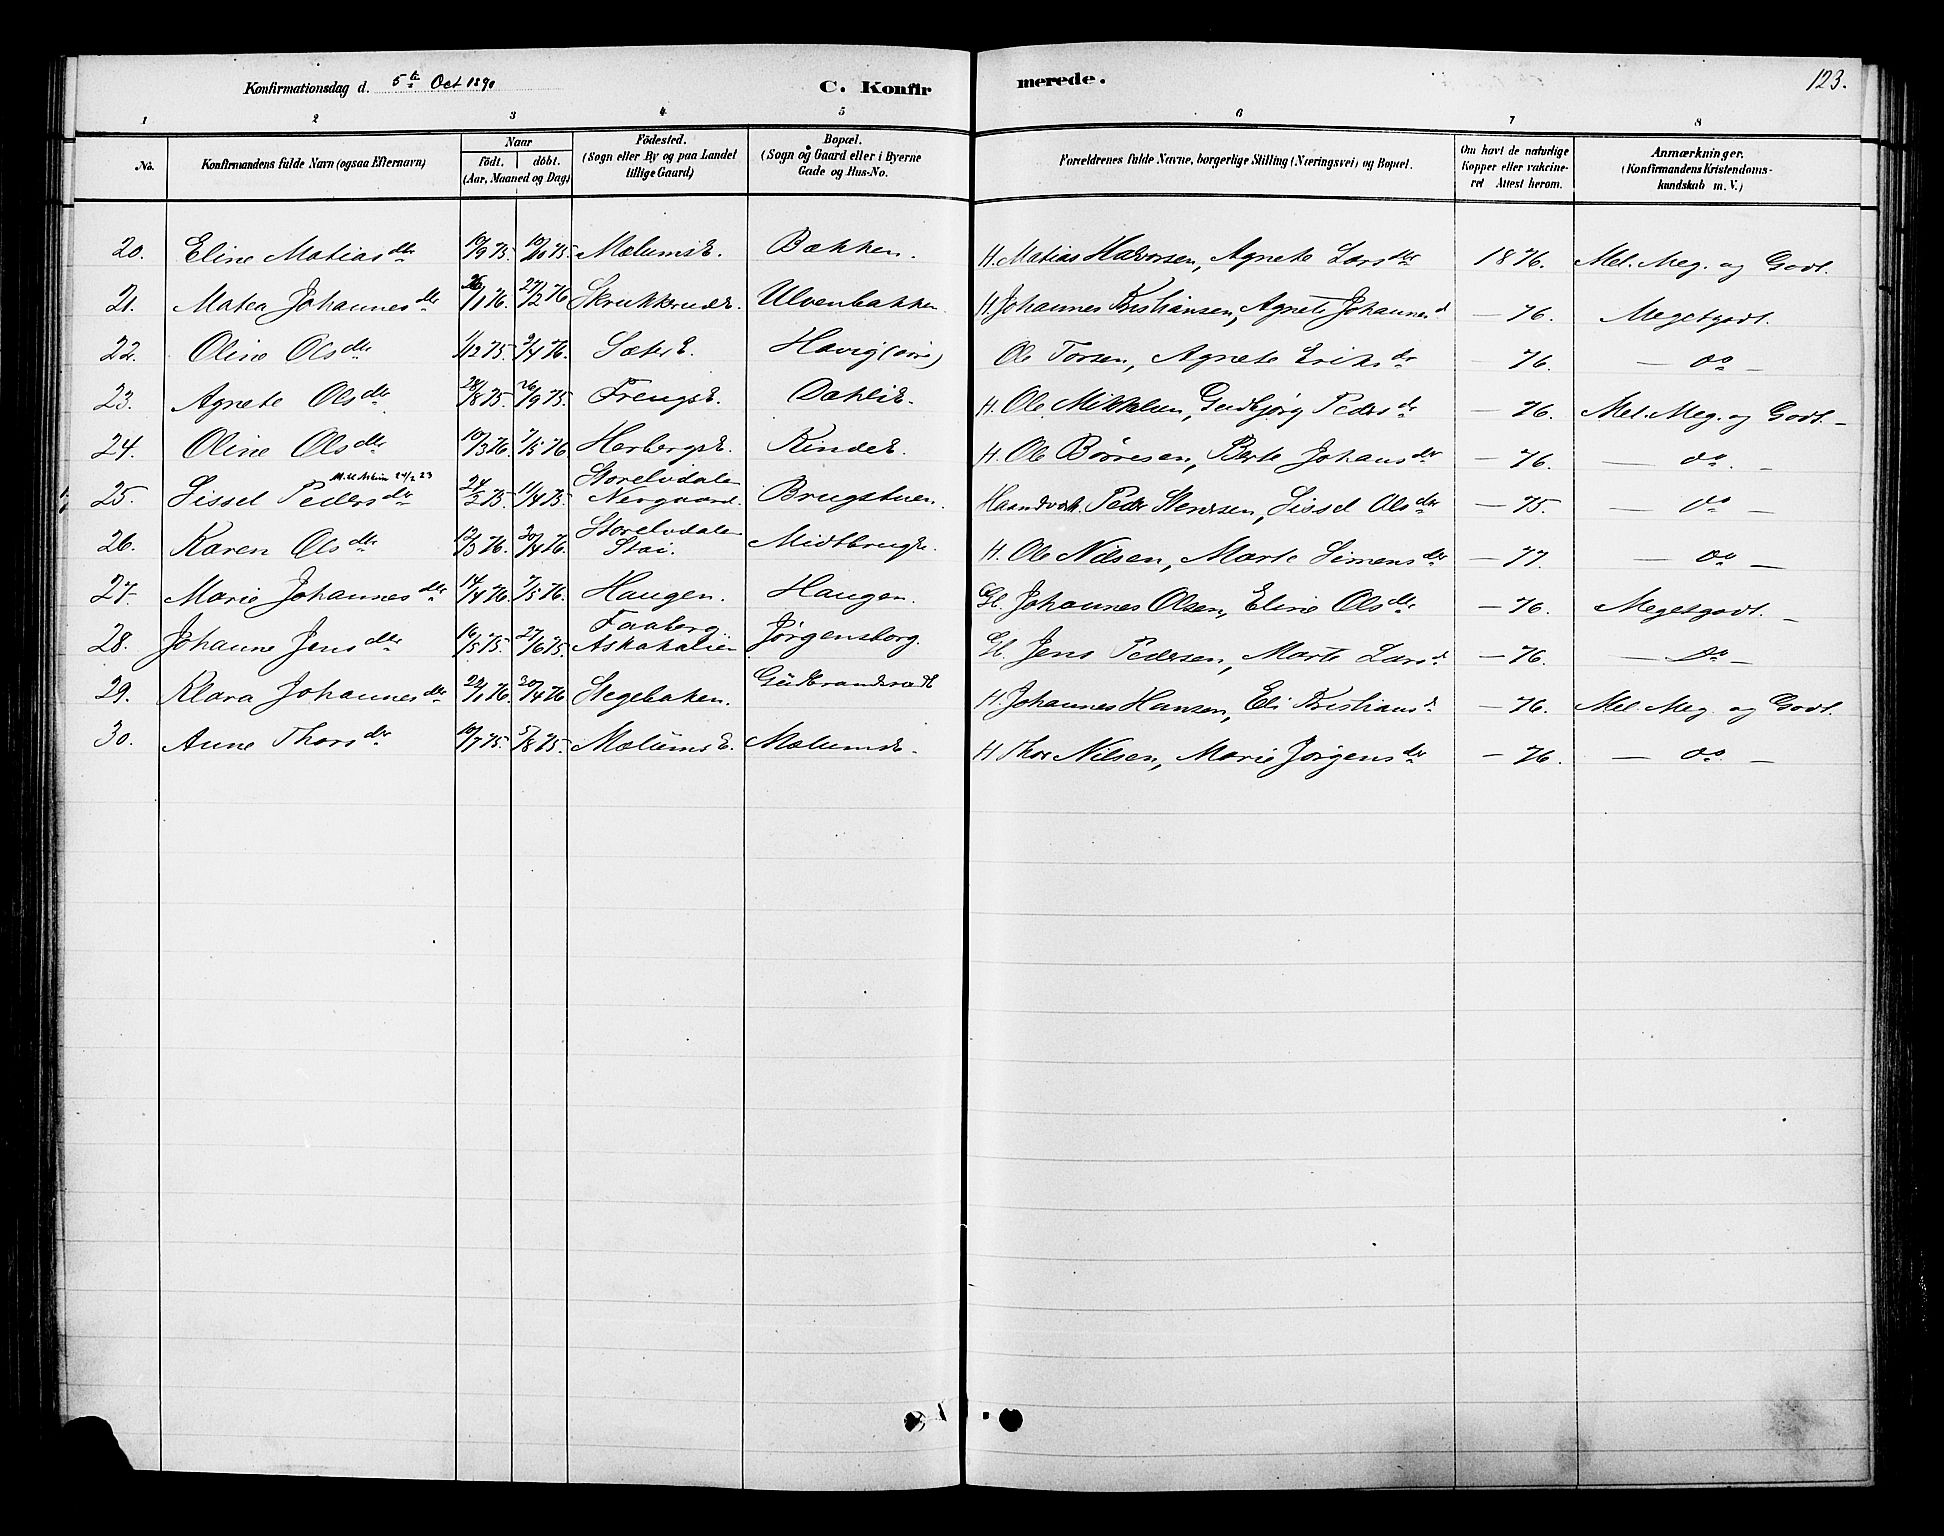 Konfirmationsdag d. 5te Oct 1890 C. Konfir merede. 123.
1 2 3 4 5 6 7 8
No. Konfirmandens fulde Navn (ogsaa Efternavn) Naar födt. döbt. (Aar, Maaned og Dag) Födested. (Sogn eller By og paa Landet tillige Gaard) Bopæl. (Sogn og Gaard eller i Byerne Gade og Hus-No. Forældrenes fulde Navne, borgerlige Stilling (Næringsvei) og Bopæl. Om havt de naturlige Kopper eller vakcineret Attest herom. Anmærkninger. (Konfirmandens Kristendomskundskab m. V.)
20. Eline Matiasdtr 19/9 75. 10/10 75. MælumsE. Bækken. H. Matias Halvorsen, Agnete Larsdtr 1876. Mel. Meg. og Godt.
21. Matea Johannesdtr 26/1 76. 27/2 76 SkrukkerudE. Ulvenbakken. H. Johannes Kristiansen, Agnete Johannesd — 76. Megetgodt.
22. Oline Olsdtr 1/12 75. 2/4 76. SæterE. Havig (øvre) Ole Torsen, Agnete Eriksdr — 76. — do —
23. Agnete Olsdtr 28/8 75. 26/9 75. FrengsE. DahliE. H. Ole Mikkelsen, Gudbjørg Pedersdr — 76. Mel. Meg. og Godt. —
24. Oline Olsdtr 10/3 76. 7/5 76 HerbergsE. KindeE. H. Ole Börresen, Berte Johansdtr — 76. — do. —
25. Sissel Pedersdtr 24/2 75. 11/4 75. Storelvdalen Nergaard. Brugstuen. Haandverk. Peder Stenersen, Sissel Olsdtr — 75. — do —
26. Karen Olsdtr 12/3 76. 20/4 76. Storelvdalen Stai. MidtbrugE. H. Ole Nilsen, Marte Simensdtr — 77. — do —
27. Marie Johannesdtr 14/4 76. 7/5 76. Haugen. Haugen. Gb. Johannes Olsen, Eline Olsdtr — 76. Megetgodt. —
28. Johanne Jensdtr 16/5 75. 27/6 75. Faaberg Jørgensborg. Gb. Jens Pedersen, Marte Larsd — 76. — do —
29. Klara Johannesdtr 22/1 76. 30/4 76 Stegebaken. H. Johannes Hansen, Eli Kristiansd — 76. Mel. Meg. og Godt.
30. Anne Thorsdtr 10/7 75. 5/8 75. MælumsE. MælumsE. H Thor Nilsen, Marie Jörgensdtr — 76. — do —